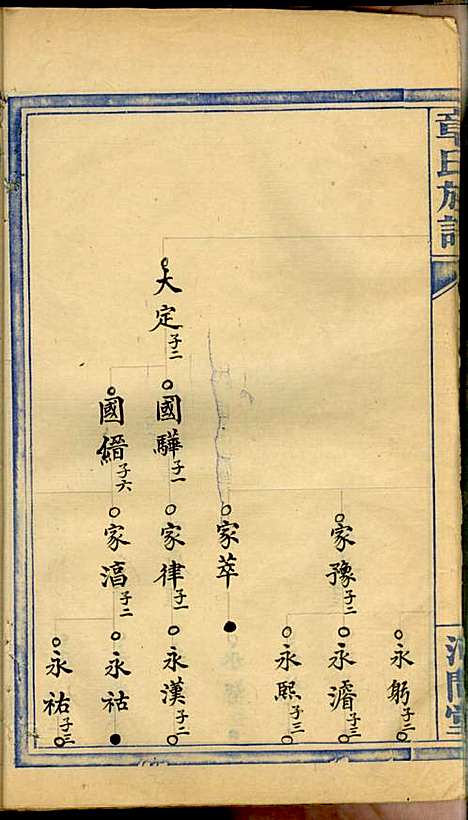 章氏族譜
永躬子二
家豫子二
永濬子三
永熙子三
家萃
大定子二
國驊子一
家律子一
永漢子二
國縉子六
家滈子二
永祜
永祐子三